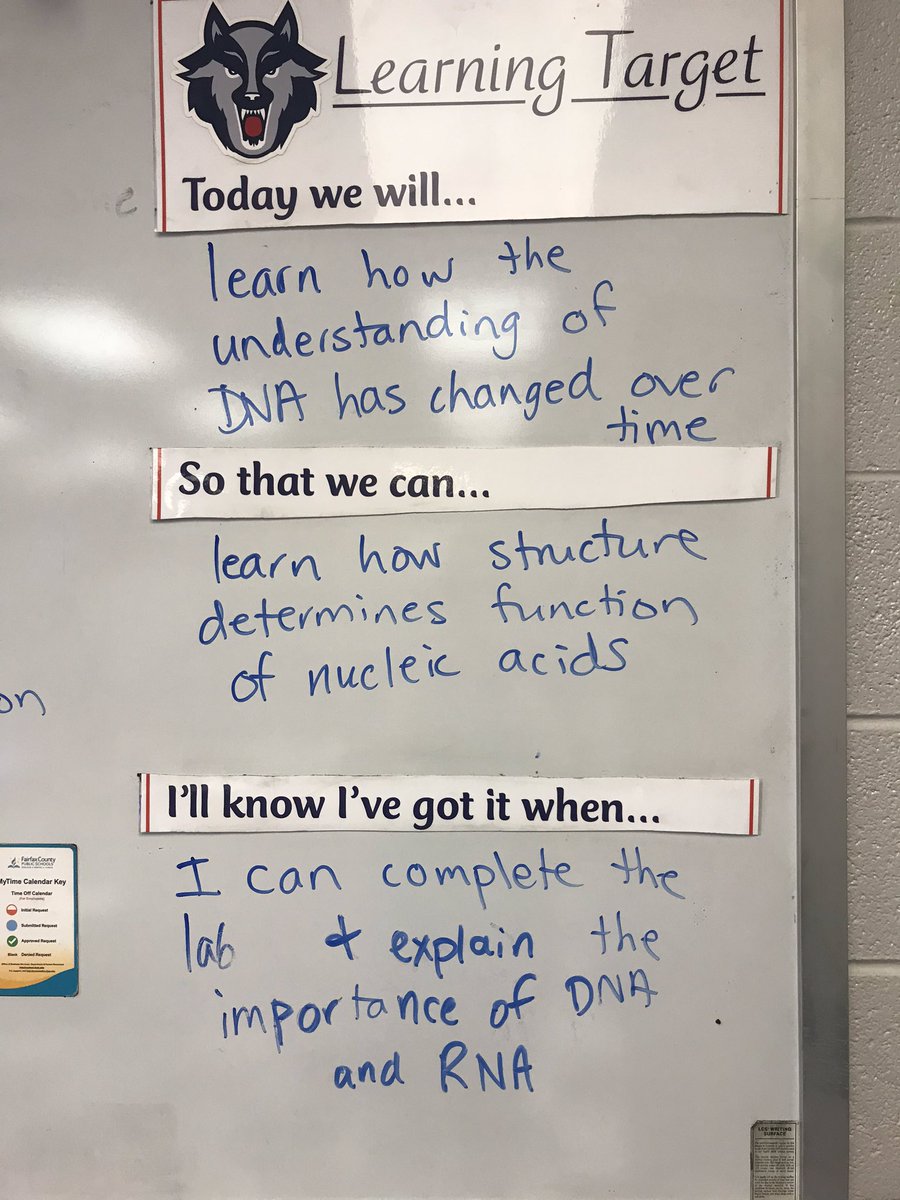 Learning Target
Today we will...
learn how the
understanding of
DNA has changed over
time
So that we can...
learn how structure
determines function
of nucleic acids
on
I'll know I've got it when...
I can complete the
lab + explain the
importance of DNA
and RNA
Fairfax County
PUBLIC SCHOOLS
MyTime Calendar Key
Time Off Calendar
(For Employees)
Initial Request
Submitted Request
Approved Request
Black Denied Request
LCS WRITING
SURFACE